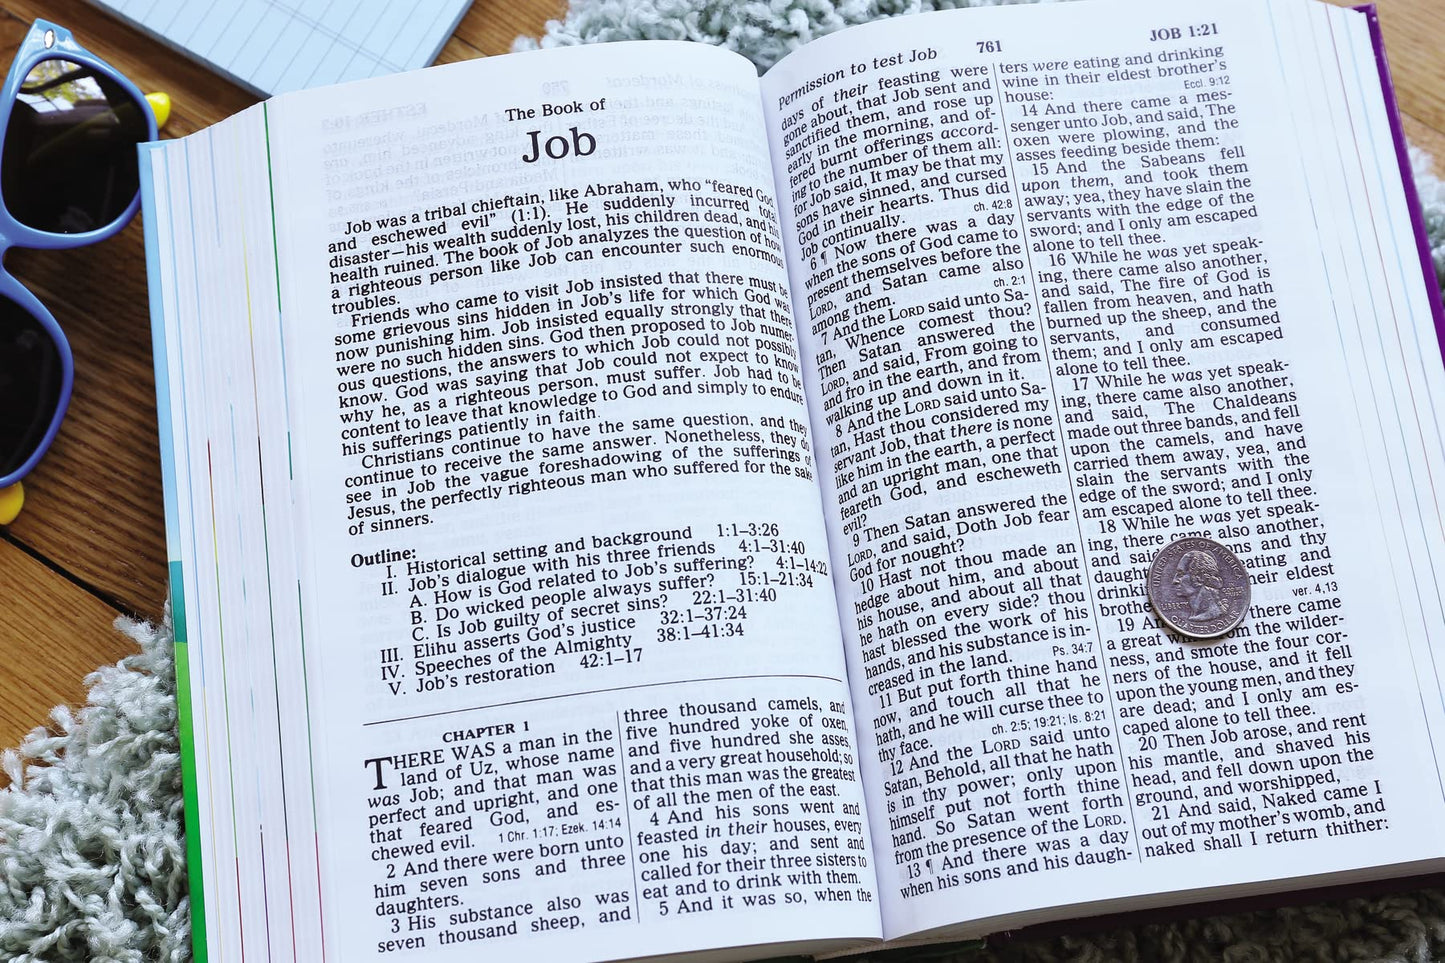 The Book of
Job
Job was a tribal chieftain, like Abraham, who “feared God
and eschewed evil” (1:1). He suddenly incurred total
disaster—his wealth suddenly lost, his children dead, and his
health ruined. The book of Job analyzes the question of how
a righteous person like Job can encounter such enormous
troubles.
Friends who came to visit Job insisted that there must be
some grievous sins hidden in Job’s life for which God was
now punishing him. Job insisted equally strongly that there
were no such hidden sins. God then proposed to Job numer-
ous questions, the answers to which Job could not possibly
know. God was saying that Job could not expect to know
why he, as a righteous person, must suffer. Job had to be
content to leave that knowledge to God and simply to endure
his sufferings patiently in faith.
Christians continue to have the same question, and they
continue to receive the same answer. Nonetheless, they do
see in Job the vague foreshadowing of the sufferings of
Jesus, the perfectly righteous man who suffered for the sake
of sinners.
Outline:
I. Historical setting and background 1:1–3:26
II. Job’s dialogue with his three friends 4:1–31:40
A. How is God related to Job’s suffering? 4:1–14:22
B. Do wicked people always suffer? 15:1–21:34
C. Is Job guilty of secret sins? 22:1–31:40
III. Elihu asserts God’s justice 32:1–37:24
IV. Speeches of the Almighty 38:1–41:34
V. Job’s restoration 42:1–17
CHAPTER 1
THERE WAS a man in the
land of Uz, whose name
was Job; and that man was
perfect and upright, and one
that feared God, and es-
chewed evil. 1 Chr. 1:17; Ezek. 14:14
2 And there were born unto
him seven sons and three
daughters.
3 His substance also was
seven thousand sheep, and
three thousand camels, and
five hundred yoke of oxen,
and five hundred she asses,
and a very great household; so
that this man was the greatest
of all the men of the east.
4 And his sons went and
feasted in their houses, every
one his day; and sent and
called for their three sisters to
eat and to drink with them.
5 And it was so, when the
Permission to test Job 761 JOB 1:21
days of their feasting were
gone about, that Job sent and
sanctified them, and rose up
early in the morning, and of-
fered burnt offerings accord-
ing to the number of them all:
for Job said, It may be that my
sons have sinned, and cursed
God in their hearts. Thus did
Job continually. ch. 42:8
6 ¶ Now there was a day
when the sons of God came to
present themselves before the
LORD, and Satan came also
among them. ch. 2:1
7 And the LORD said unto Sa-
tan, Whence comest thou?
Then Satan answered the
LORD, and said, From going to
and fro in the earth, and from
walking up and down in it.
8 And the LORD said unto Sa-
tan, Hast thou considered my
servant Job, that there is none
like him in the earth, a perfect
and an upright man, one that
feareth God, and escheweth
evil?
9 Then Satan answered the
LORD, and said, Doth Job fear
God for nought?
10 Hast not thou made an
hedge about him, and about
his house, and about all that
he hath on every side? thou
hast blessed the work of his
hands, and his substance is in-
creased in the land. Ps. 34:7
11 But put forth thine hand
now, and touch all that he
hath, and he will curse thee to
thy face. ch. 2:5; 19:21; Is. 8:21
12 And the LORD said unto
Satan, Behold, all that he hath
is in thy power; only upon
himself put not forth thine
hand. So Satan went forth
from the presence of the LORD.
13 ¶ And there was a day
when his sons and his daugh-
ters were eating and drinking
wine in their eldest brother’s
house: Eccl. 9:12
14 And there came a mes-
senger unto Job, and said, The
oxen were plowing, and the
asses feeding beside them:
15 And the Sabeans fell
upon them, and took them
away; yea, they have slain the
servants with the edge of the
sword; and I only am escaped
alone to tell thee.
16 While he was yet speak-
ing, there came also another,
and said, The fire of God is
fallen from heaven, and hath
burned up the sheep, and the
servants, and consumed
them; and I only am escaped
alone to tell thee.
17 While he was yet speak-
ing, there came also another,
and said, The Chaldeans
made out three bands, and fell
upon the camels, and have
carried them away, yea, and
slain the servants with the
edge of the sword; and I only
am escaped alone to tell thee.
18 While he was yet speak-
ing, there came also another,
and said ons and thy
daught eating and
drinki heir eldest
brothe ver. 4,13
19 An there came
a great from the wilder-
ness, and smote the four cor-
ners of the house, and it fell
upon the young men, and they
are dead; and I only am es-
caped alone to tell thee.
20 Then Job arose, and rent
his mantle, and shaved his
head, and fell down upon the
ground, and worshipped,
21 And said, Naked came I
out of my mother’s womb, and
naked shall I return thither:
UNITED STATES OF AMERICA
LIBERTY
QUARTER DOLLAR